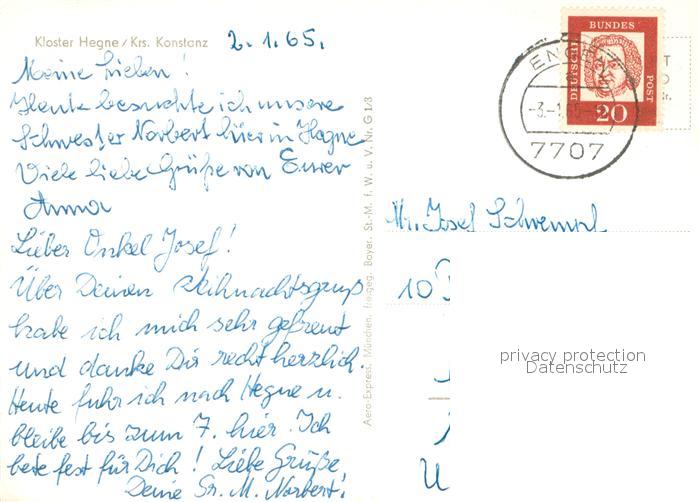 Kloster Hegne / Krs. Konstanz
2.1.65.
Meine Lieben!
Heute besuchte ich unsere
Schwester Norbert hier in Hegne
Viele liebe Grüße von Eurer
Anna
Lieber Onkel Josef!
Über Deinen Weihnachtsgruß
habe ich mich sehr gefreut
und danke Dir recht herzlich.
Heute fuhr ich nach Hegne u.
bleibe bis zum 7. hier. Ich
bete fest für Dich! Liebe Grüße,
Deine Sr. M. Norbert!
Aero-Express, München, Freigeg. Bayer. St.-M. f. W. u. V. Nr. G 1/8
DEUTSCHE BUNDES POST
20
7707
Mr. Josef
10
U
privacy protection
Datenschutz